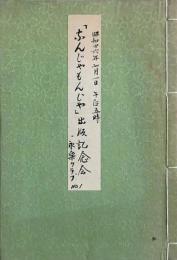 昭和廿六年七月一日 午后五時
「なんじゃもんじゃ」出版記念会
永楽クラブ
NO.1